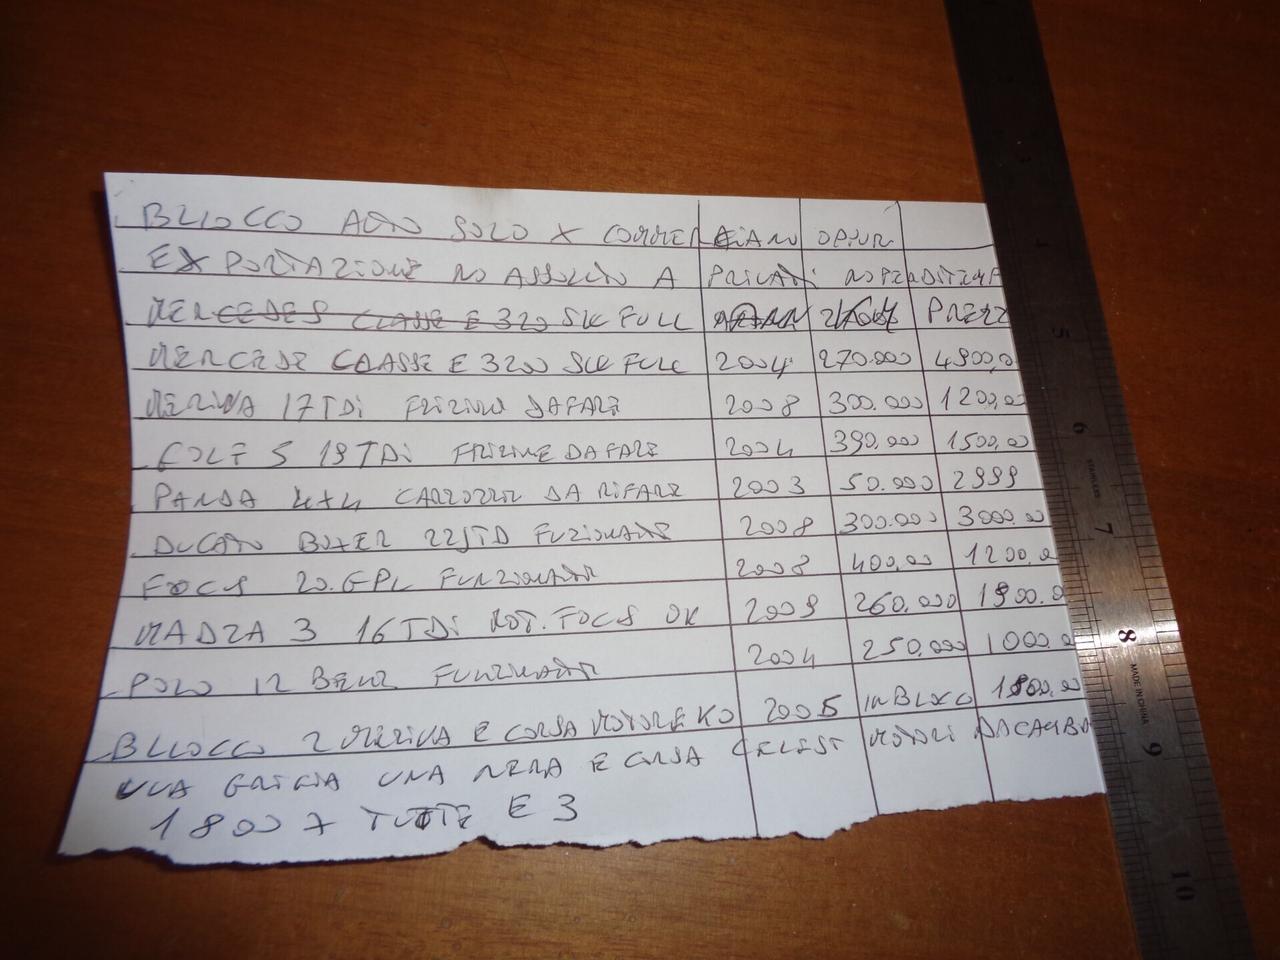 BLLOCCO AUTO SOLO X COMMERCIANO OPPUR
EXPORTAZIONE NO ASSOLUTO A PRIVATI NO PERDITEMP
MERCEDES CLASSE E 320 SW FULL PREZZ
MERCEDE CLASSE E 320 SW FULL 2004 270.000 4900,0
MERIVA 17 TDI FRIZIONE DAFARE 2008 300.000 1200,00
GOLF 5 19 TDI FRIZINE DAFARE 2004 390.000 1500,00
PANDA 4X4 CARROZZR DA RIFARE 2003 50.000 2999
DUCATO BOXER 22JTD FUZIONANTE 2008 300.000 3000.00
FOCUS 20.GPL FUNZIONANT 2008 400,00 1200.0
MADZA 3 16 TDI MOT. FOCUS OK 2009 260.000 1900.0
POLO 12 BENZ FUNZINANTE 2004 250.000 1000.0
BLLOCCO 2 MERIVA E CORSA MOTORE KO 2005 IN BLOCO 1800.00
UNA GRIGIA UNA NERA E CORSA CELEST MOTORI DACAMBI
1800 X TUTTE E 3
4
5
6
7
8
9
10
STAINLESS
MADE IN CHINA